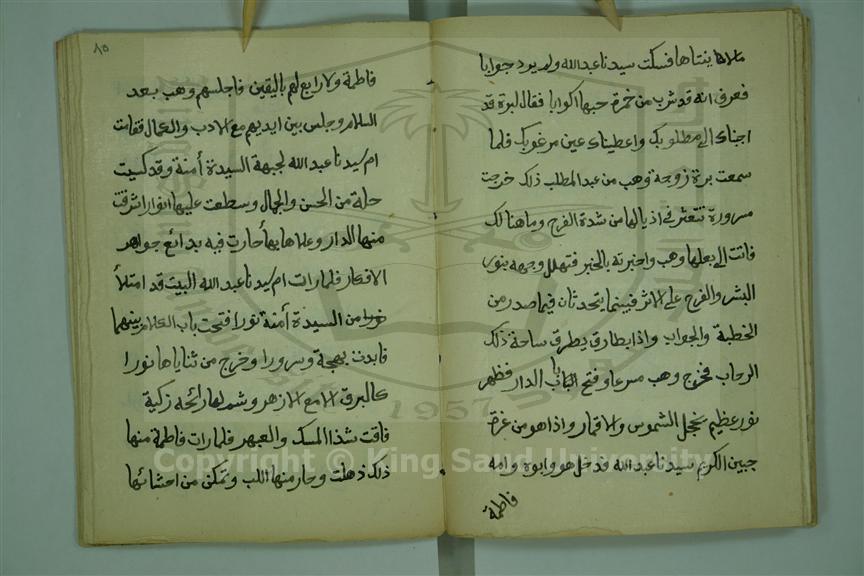 ملاذا بنتاها فسكت سيدنا عبد الله ولم يرد جوابا
فعرف انه قد شرب من خمرة حبها اكوابا فقال لبرة قد
اجبناك الى مطلوبك واعطيناك عين مرغوبك فلما
سمعت برة زوجة وهب من عبد المطلب ذلك خرجت
مسرورة تتعثر في اذيالها من شدة الفرح وما هنالك
فاتت الى بعلها وهب واخبرته بالخبر فتهلل وجهه بنور
البشر والفرح على الاثر فبينما يتحدثان فيما صدر من
الخطبة والجواب واذا بطارق يطرق ساحة ذلك
الرحاب فخرج وهب مسرعا وفتح الباب الدار فظهر
نور عظيم يخجل الشموس والاقمار واذا هو من غرة
جبين الكريم سيدنا عبد الله فدخل هو وابوه وامه
فاطمة
٨٥
فاطمة ولا رابع لهم باليقين فاجلسهم وهب بعد
السلام وجلس بين ايديهم مع الادب والكمال فقامت
ام سيدنا عبد الله لجبهة السيدة أمنة وقد كسيت
حلة من الحسن والجمال وسطعت عليها انوار اشرقت
منها الدار وعلاها بهأ حارت فيه بدائع جواهر
الافكار فلما رات ام سيدنا عبد الله البيت قد امتلأ
نورا من السيدة أمنة نورا فتحت باب الكلام بينهما
فابدت بهجة وسرورا وخرج من ثناياها نورا
كالبرق اللامع الازهر وشم لها رائحه زكية
فاقت شذا المسك والعبهر فلما رات فاطمة منها
ذلك ذهلت وحار منها اللب وتمكن من احشائها
Copyright © King Saud University
1957